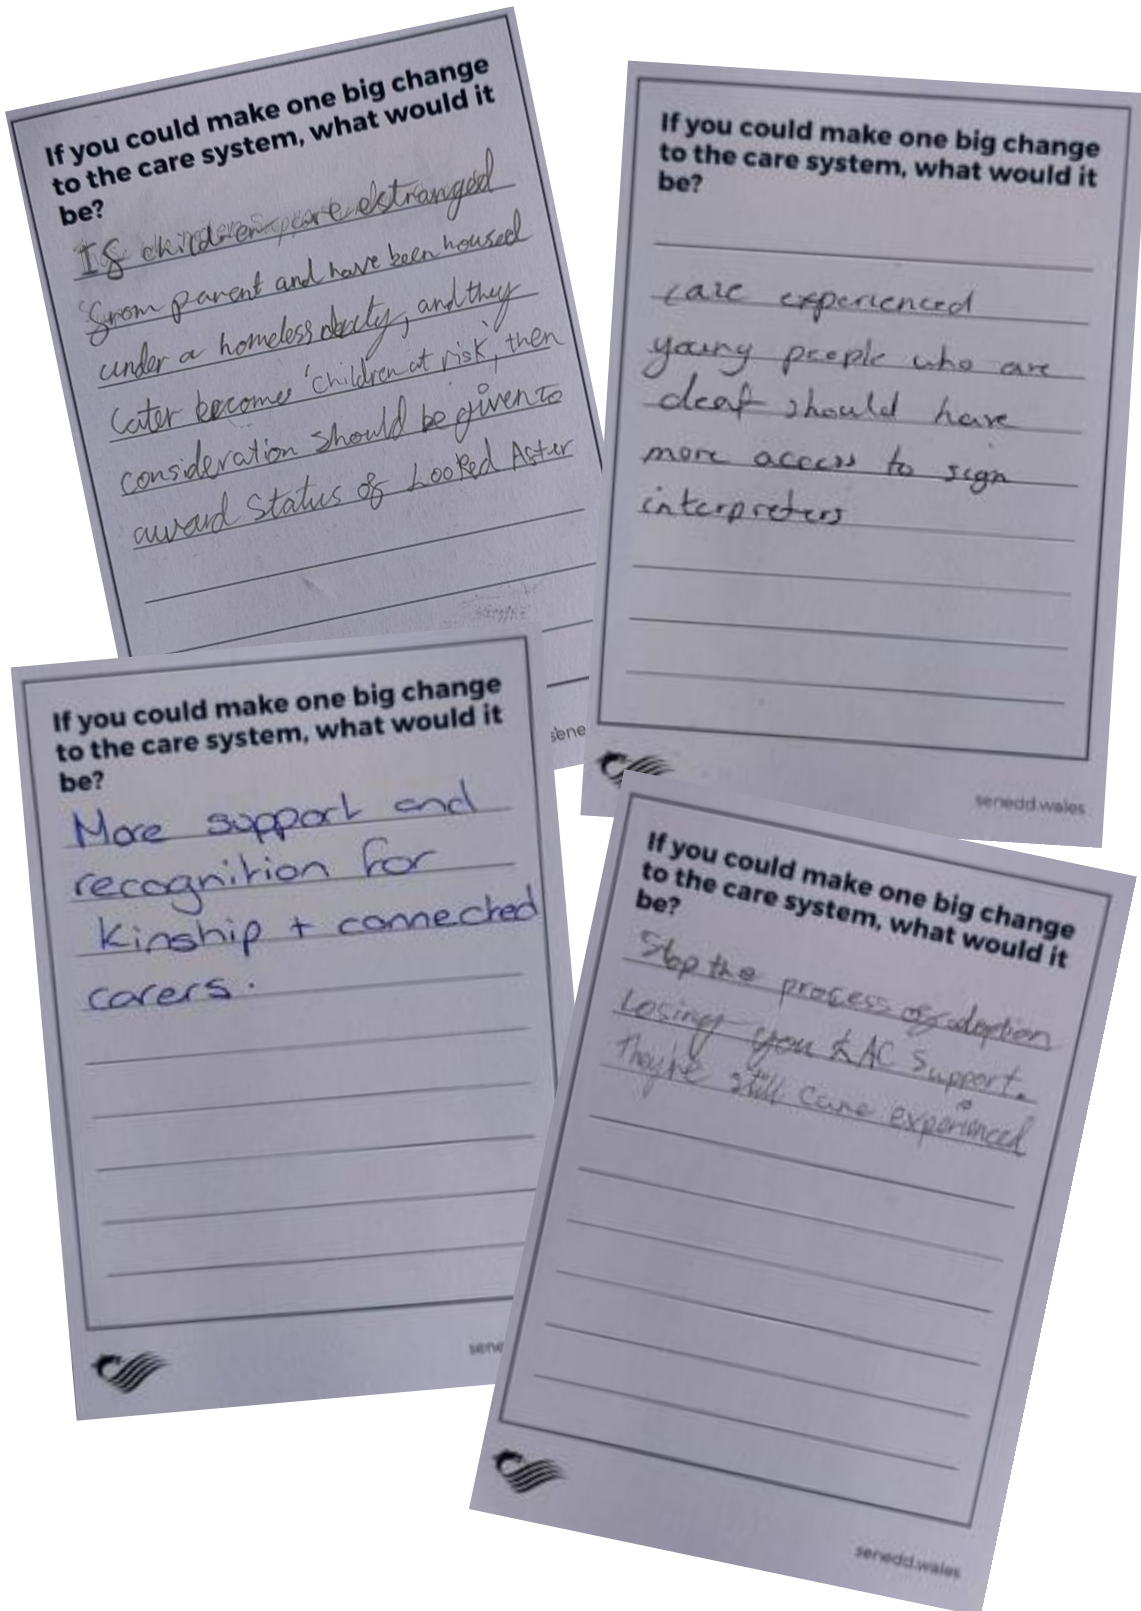 If you could make one big change
to the care system, what would it
be?
If children are estranged
from parent and have been housed
under a homeless duty, and they
later becomes 'children at risk', then
consideration should be given to
award status of Looked After
sene
If you could make one big change
to the care system, what would it
be?
care experienced
young people who are
deaf should have
more access to sign
interpreters
senedd.wales
If you could make one big change
to the care system, what would it
be?
More support and
recognition for
kinship + connected
carers.
sene
If you could make one big change
to the care system, what would it
be?
Stop the process of adoption
Losing you LAC support.
They're still care experienced
senedd.wales